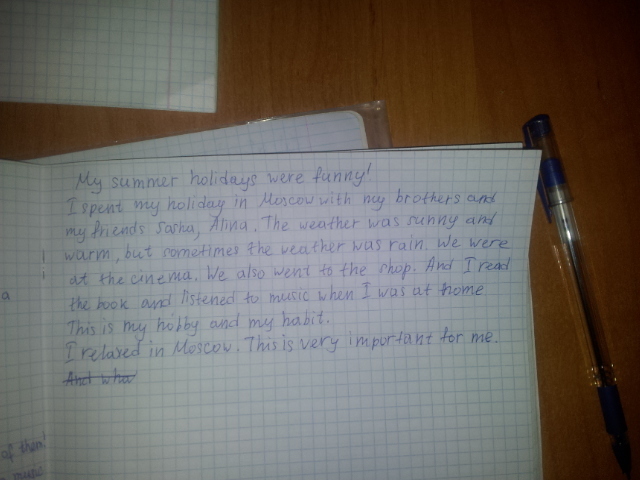 My summer holidays were funny!
I spent my holiday in Moscow with my brothers and
my friends Sasha, Alina. The weather was sunny and
warm, but sometimes the weather was rain. We were
at the cinema. We also went to the shop. And I read
the book and listened to music when I was at home
This is my hobby and my habit.
I relaxed in Moscow. This is very important for me.
And wha
a
of them!
music